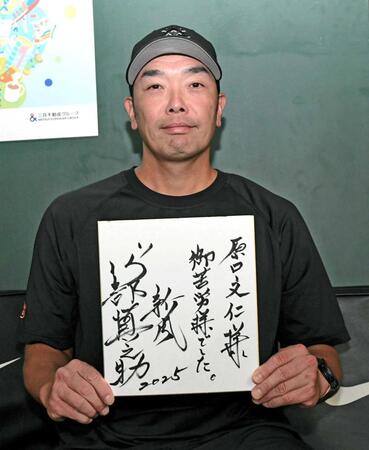 三井不動産グループ
原口文仁様
御苦労様でした。
新風
阿部慎之助
2025